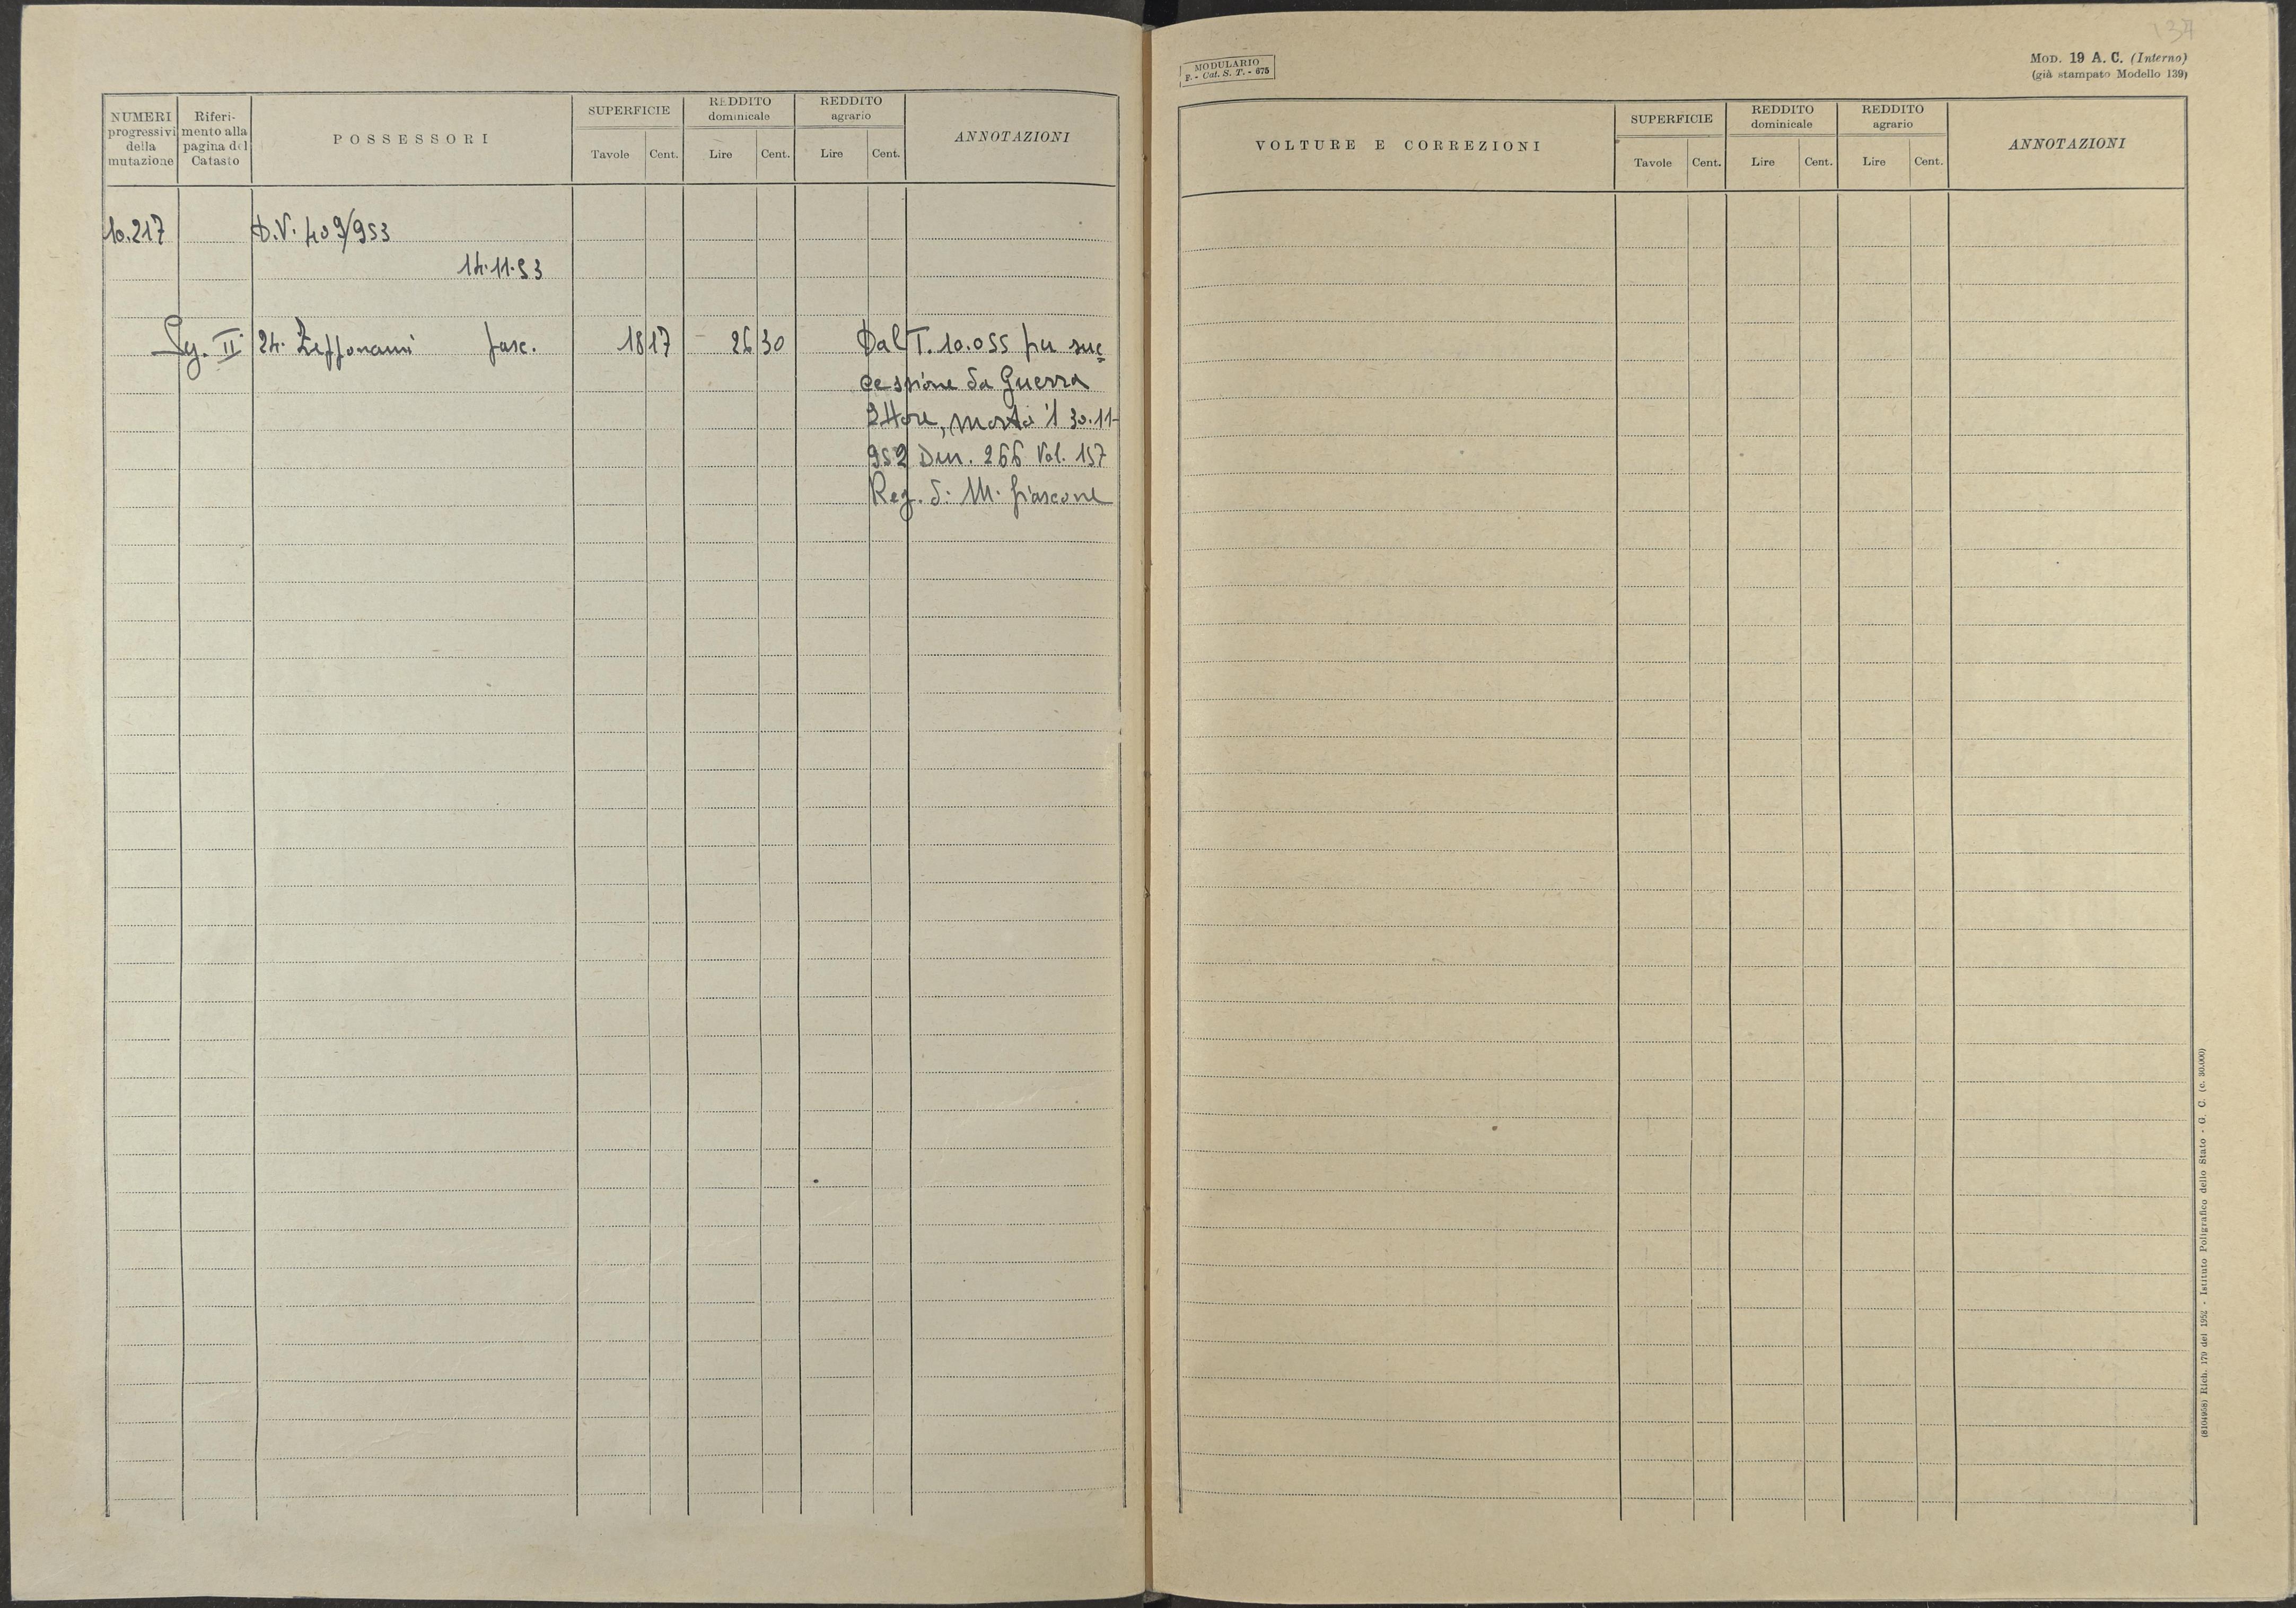 NUMERI progressivi della mutazione
Riferimento alla pagina del Catasto
POSSESSORI
SUPERFICIE
Tavole Cent.
REDDITO dominicale
Lire Cent.
REDDITO agrario
Lire Cent.
ANNOTAZIONI
10.217 D.V. 409/953
14.11.53
II 24. Zepponami 18 17 26 30 Dal T. 10.055 per suc=
cessione da Guerra
Ettore, morto il 30.11-
952 Den. 266 Vol. 157
Reg. di M. fiascone
134
MODULARIO
F. - Cat. S. T. - 675
MOD. 19 A. C. (Interno)
(già stampato Modello 139)
VOLTURE E CORREZIONI
SUPERFICIE
Tavole Cent.
REDDITO dominicale
Lire Cent.
REDDITO agrario
Lire Cent.
ANNOTAZIONI
(8104958) Rich. 179 del 1952 - Istituto Poligrafico dello Stato - G. C. (c. 30.000)